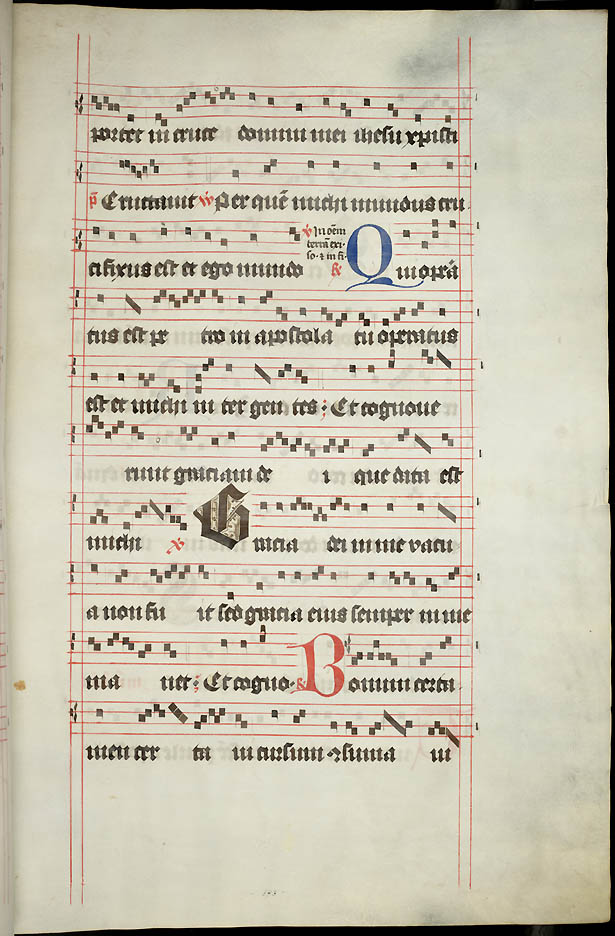 portet in cruce domini mei ihesu xpisti
p̄ Cruciauit ℣ Per quē michi mundus cru
cifixus est et ego mundo ℣ In oēm terrā exi- so· ⁊ in fi· ℟ Qui opᵉra
tus est pe tro in apostola tū operatus
est et michi in ter gen tes : Et cognoue
runt graciam de i que data est
michi ℣ Gracia dei in me vacu
a non fu it sed gracia eius semper in me
ma net : Et cogno· ℟ Bonum certa
men cer ta ui cursum ⁊suma ui